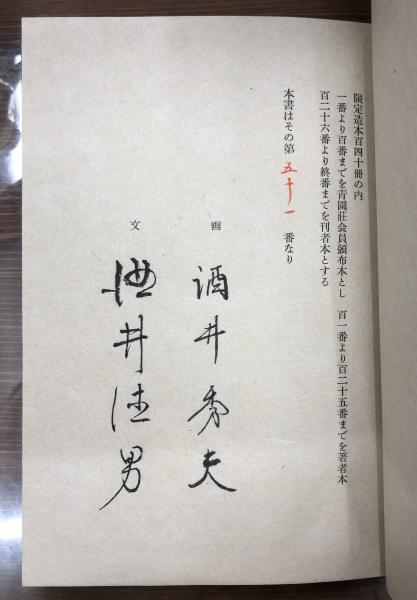 限定造本百四十冊の内
一番より百番までを青園荘会員頒布本とし 百一番より百二十五番までを著者本
百二十六番より終番までを刊者本とする
本書はその第 五十一 番なり
画 酒井秀夫
文 酒井徳男